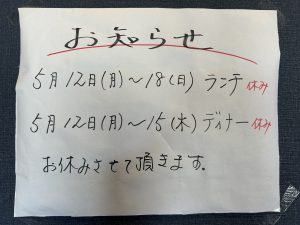 お知らせ
5月12日(月)~18(日) ランチ 休み
5月12日(月)~15(木) ディナー 休み
お休みさせて頂きます.